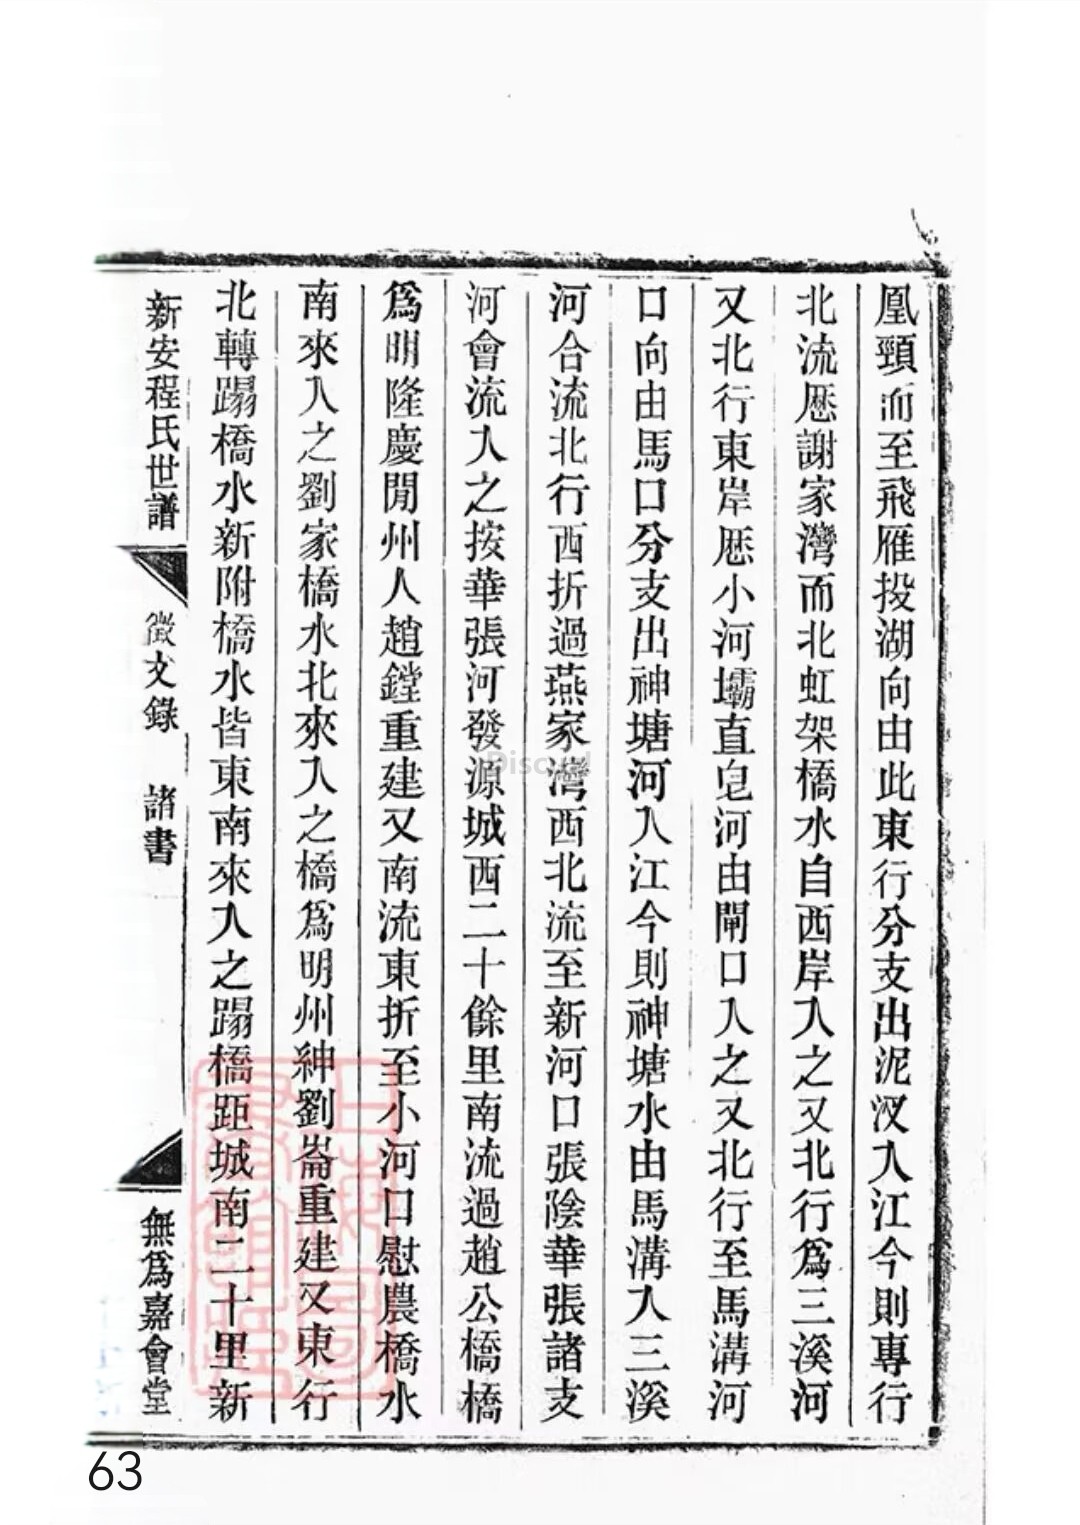 凰頸而至飛雁投湖向由此東行分支出泥汊入江今則專行
北流歷謝家灣而北虹架橋水自西岸入之又北行爲三溪河
又北行東岸歷小河壩直皂河由閘口入之又北行至馬溝河
口向由馬口分支出神塘河入江今則神塘水由馬溝入三溪
河合流北行西折過燕家灣西北流至新河口張陰華張諸支
河會流入之按華張河發源城西二十餘里南流過趙公橋橋
爲明隆慶閒州人趙鏜重建又南流東折至小河口慰農橋水
南來入之劉家橋水北來入之橋爲明州紳劉崙重建又東行
北轉蹋橋水新附橋水皆東南來入之蹋橋距城南二十里新
新安程氏世譜 徵文錄 諸書 無爲嘉會堂
63